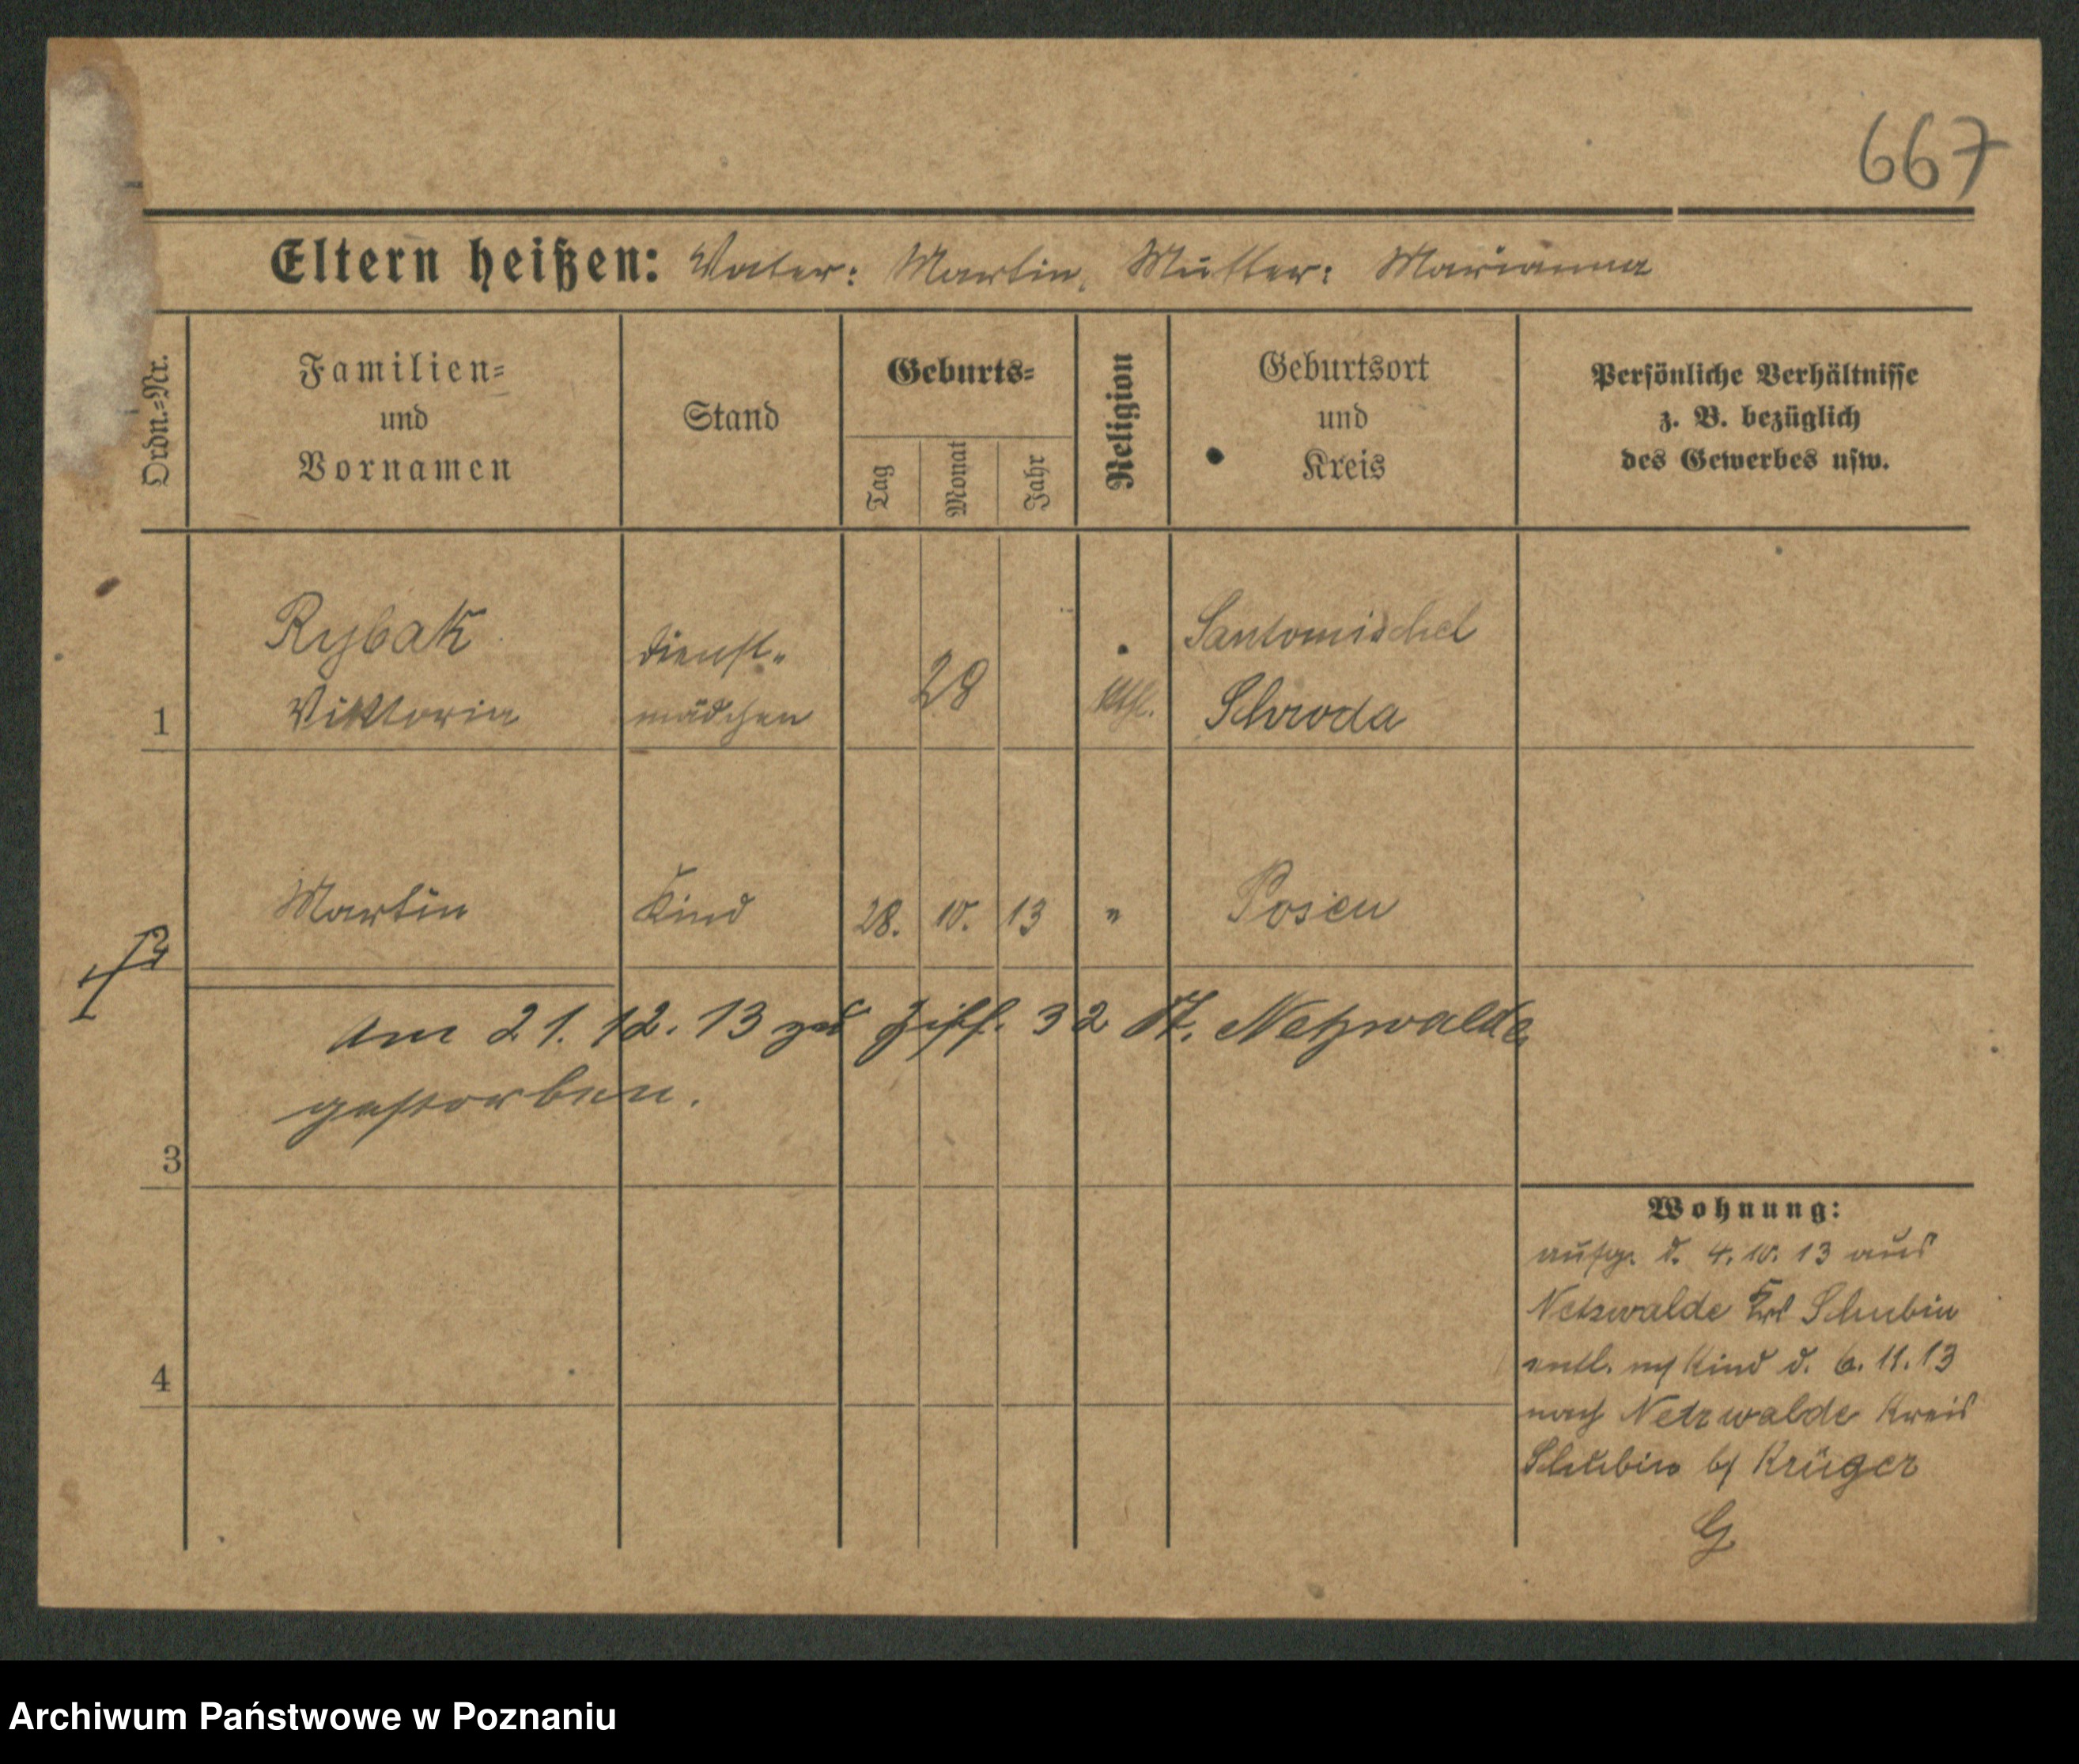 667
Eltern heißen: Vater: Martin, Mutter: Marianna
Ordn.-Nr.
Familien-
und
Vornamen
Stand
Geburts-
Tag
Monat
Jahr
Religion
Geburtsort
und
Kreis
Persönliche Verhältnisse
z. B. bezüglich
des Gewerbes usw.
1
Rybak
Viktoria
Dienst-
mädchen
28
kth.
Santomischel
Schroda
2
Martin
Kind
28. 10. 13
"
Posen
am 21. 12. 13 zu Ziff. 32 Netzwalde
gestorben.
3
4
Wohnung:
aufg. d. 4. 10. 13 aus
Netzwalde Krs Schubin
entl. m/ Kind d. 6. 11. 13
nach Netzwalde Kreis
Schubin b/ Krüger
G
Archiwum Państwowe w Poznaniu